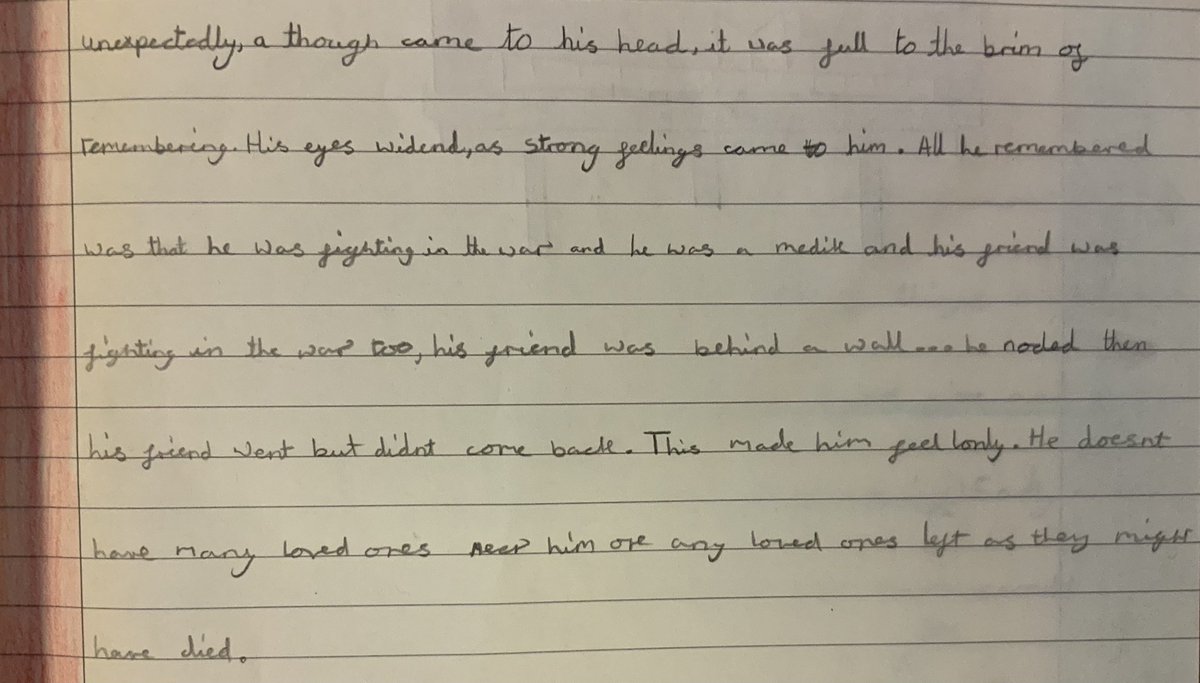 unexpectedly, a though came to his head, it was full to the brim of
remembering. His eyes widend, as strong feelings came to him. All he remembered
was that he was fighting in the war and he was a medik and his friend was
fighting in the war too, his friend was behind a wall ... he noded then
his friend went but didnt come back. This made him feel lonly. He doesnt
have many loved ones neer him ore any loved ones left as they might
have died.